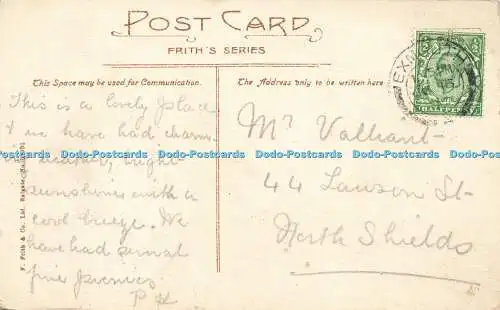 POST CARD
FRITH'S SERIES
This Space may be used for Communication.
The Address only to be written here
EXMOUTH
HALFPENNY
This is a lovely place
& we have had charm-
ing weather, bright
sunshine with a
cool breeze. We
have had several
fine journies
P H
Mr Valliant
44 Lawson St-
North Shields
F. Frith & Co., Ltd., Reigate.
Dodo-Postcards Dodo-Postcards Dodo-Postcards Dodo-Postcards Dodo-Postcards Dodo-Postcards